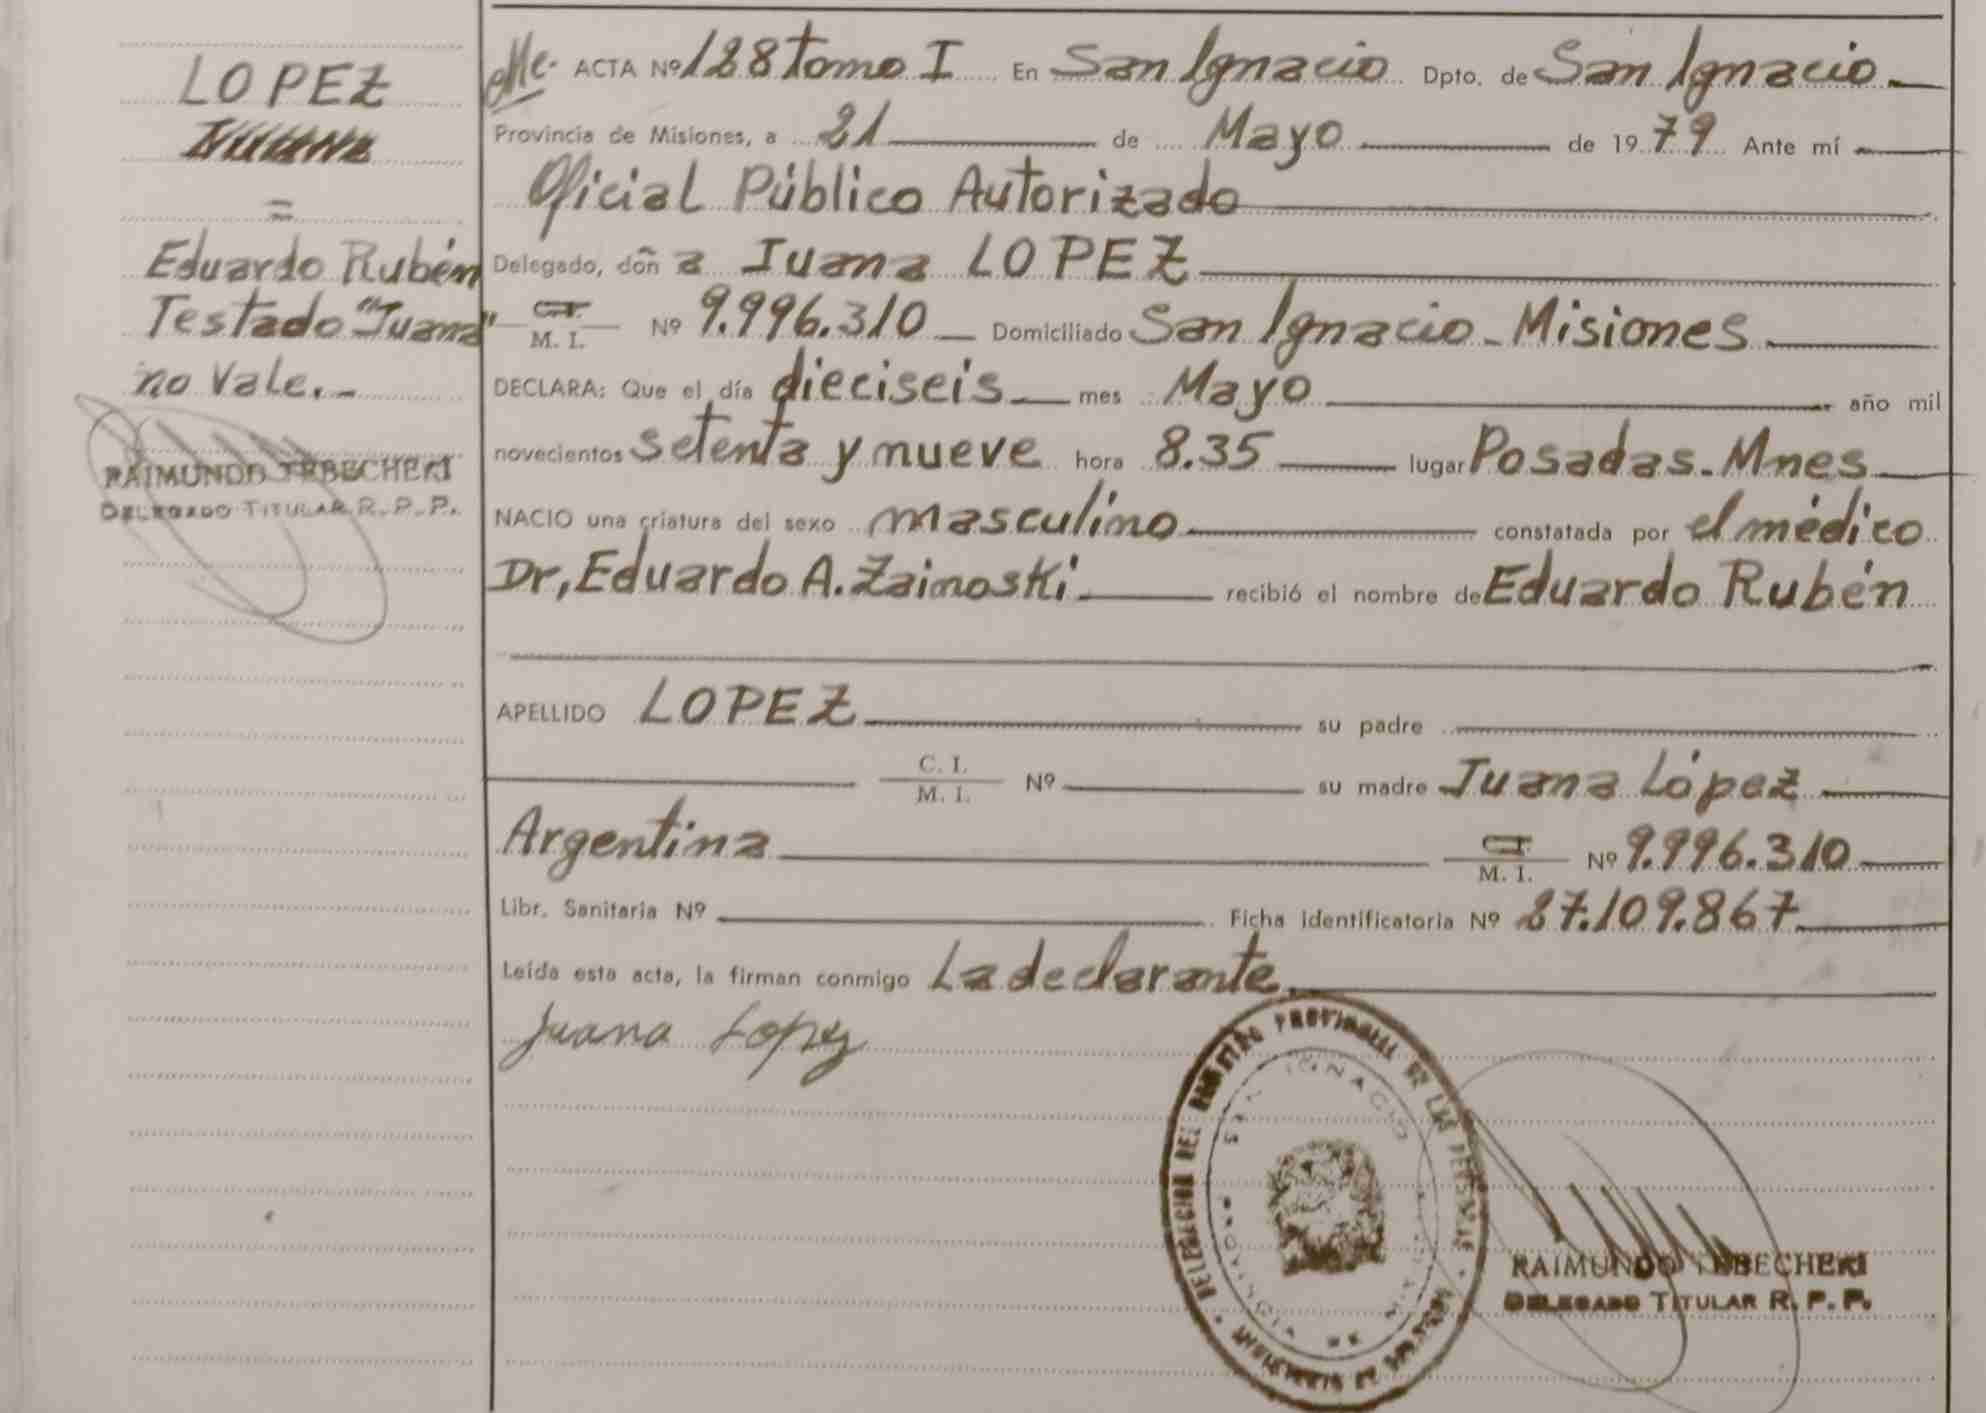 LOPEZ
=
Eduardo Rubén
Testado "Juana"
no Vale.-
RAIMUNDO TEBECHERI
DELEGADO TITULAR R. P. P.
ACTA Nº 128 Tomo I En San Ignacio Dpto. de San Ignacio
Provincia de Misiones, a 21 de Mayo de 1979 Ante mí
Oficial Público Autorizado
Delegado, doña Juana LOPEZ
C.I. M. I. Nº 9.996.310 Domiciliado San Ignacio - Misiones
DECLARA: Que el día dieciseis mes Mayo año mil
novecientos setenta y nueve hora 8.35 lugar Posadas - Mnes
NACIO una criatura del sexo masculino constatada por el médico
Dr, Eduardo A. Zaimoski recibió el nombre de Eduardo Rubén
APELLIDO LOPEZ su padre
C. I. M. I. Nº su madre Juana López
Argentina C.I. M. I. Nº 9.996.310
Libr. Sanitaria Nº Ficha identificatoria Nº 27.109.867
Leída esta acta, la firman conmigo La declarante
Juana Lopez
DELEGACION DEL REGISTRO PROVINCIAL DE LAS PERSONAS
SAN IGNACIO
PROVINCIA DE MISIONES
RAIMUNDO TEBECHERI
DELEGADO TITULAR R. P. P.